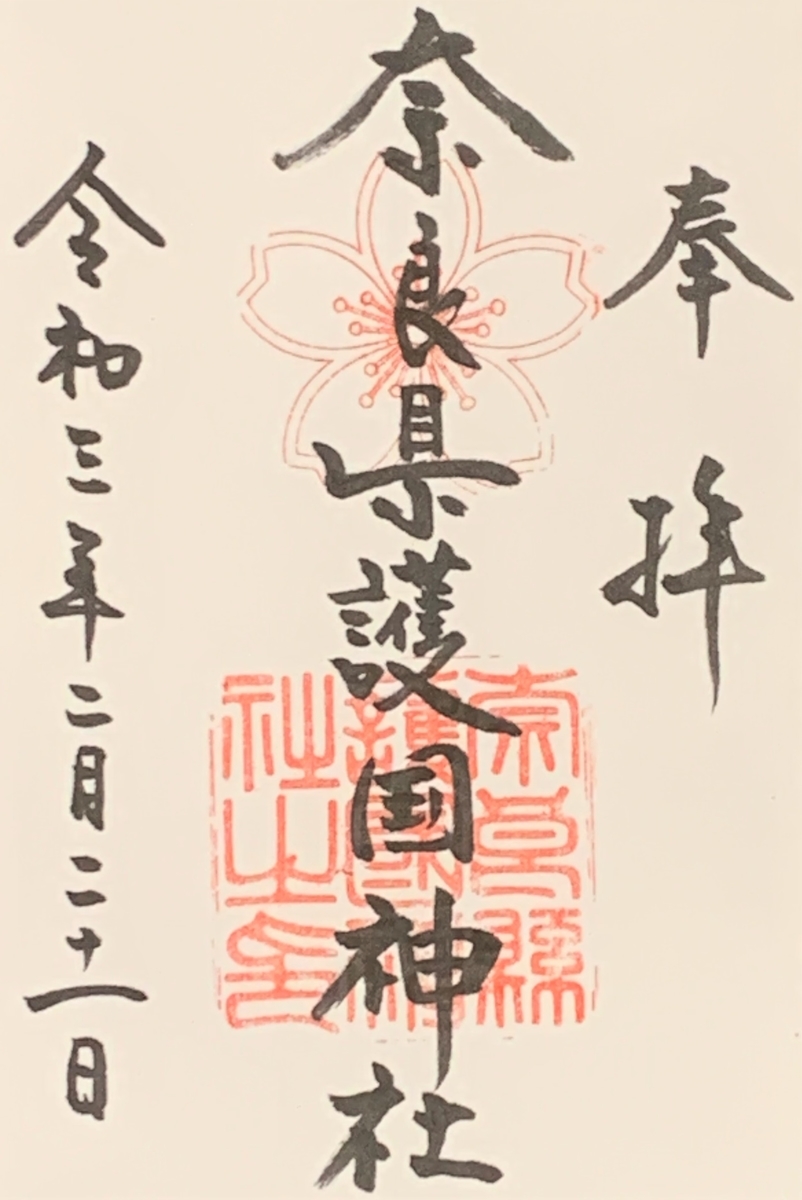 奉拝
奈良県護国神社
奈良縣
護國神
社之印
令和三年二月二十一日